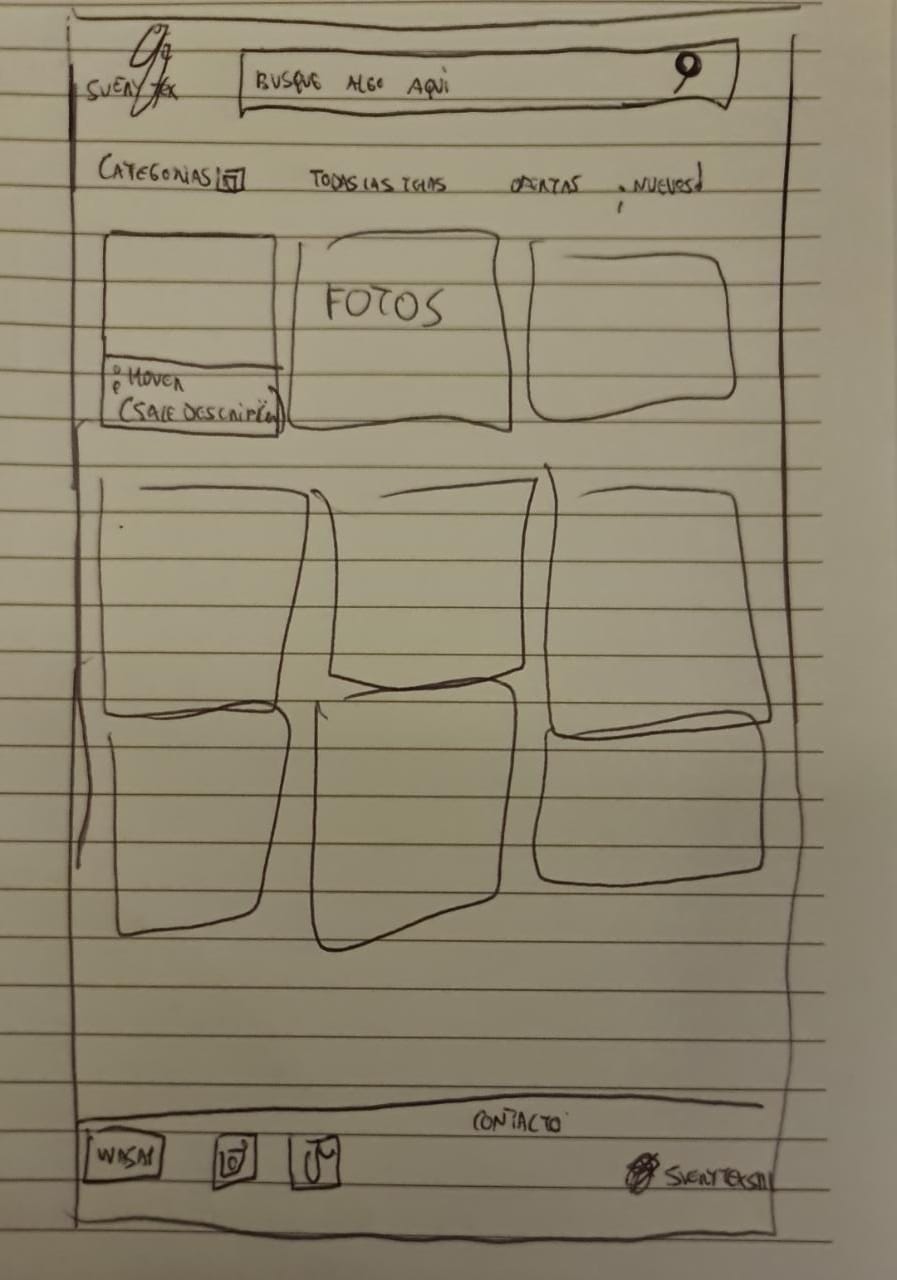 SVENYTEX
BUSQUE ALGO AQUÍ
CATEGORIAS TODAS LAS TELAS OFERTAS ¡NUEVOS!
FOTOS
:HOVER
(SALE DESCRIPCIÓN)
CONTACTO
WASAP